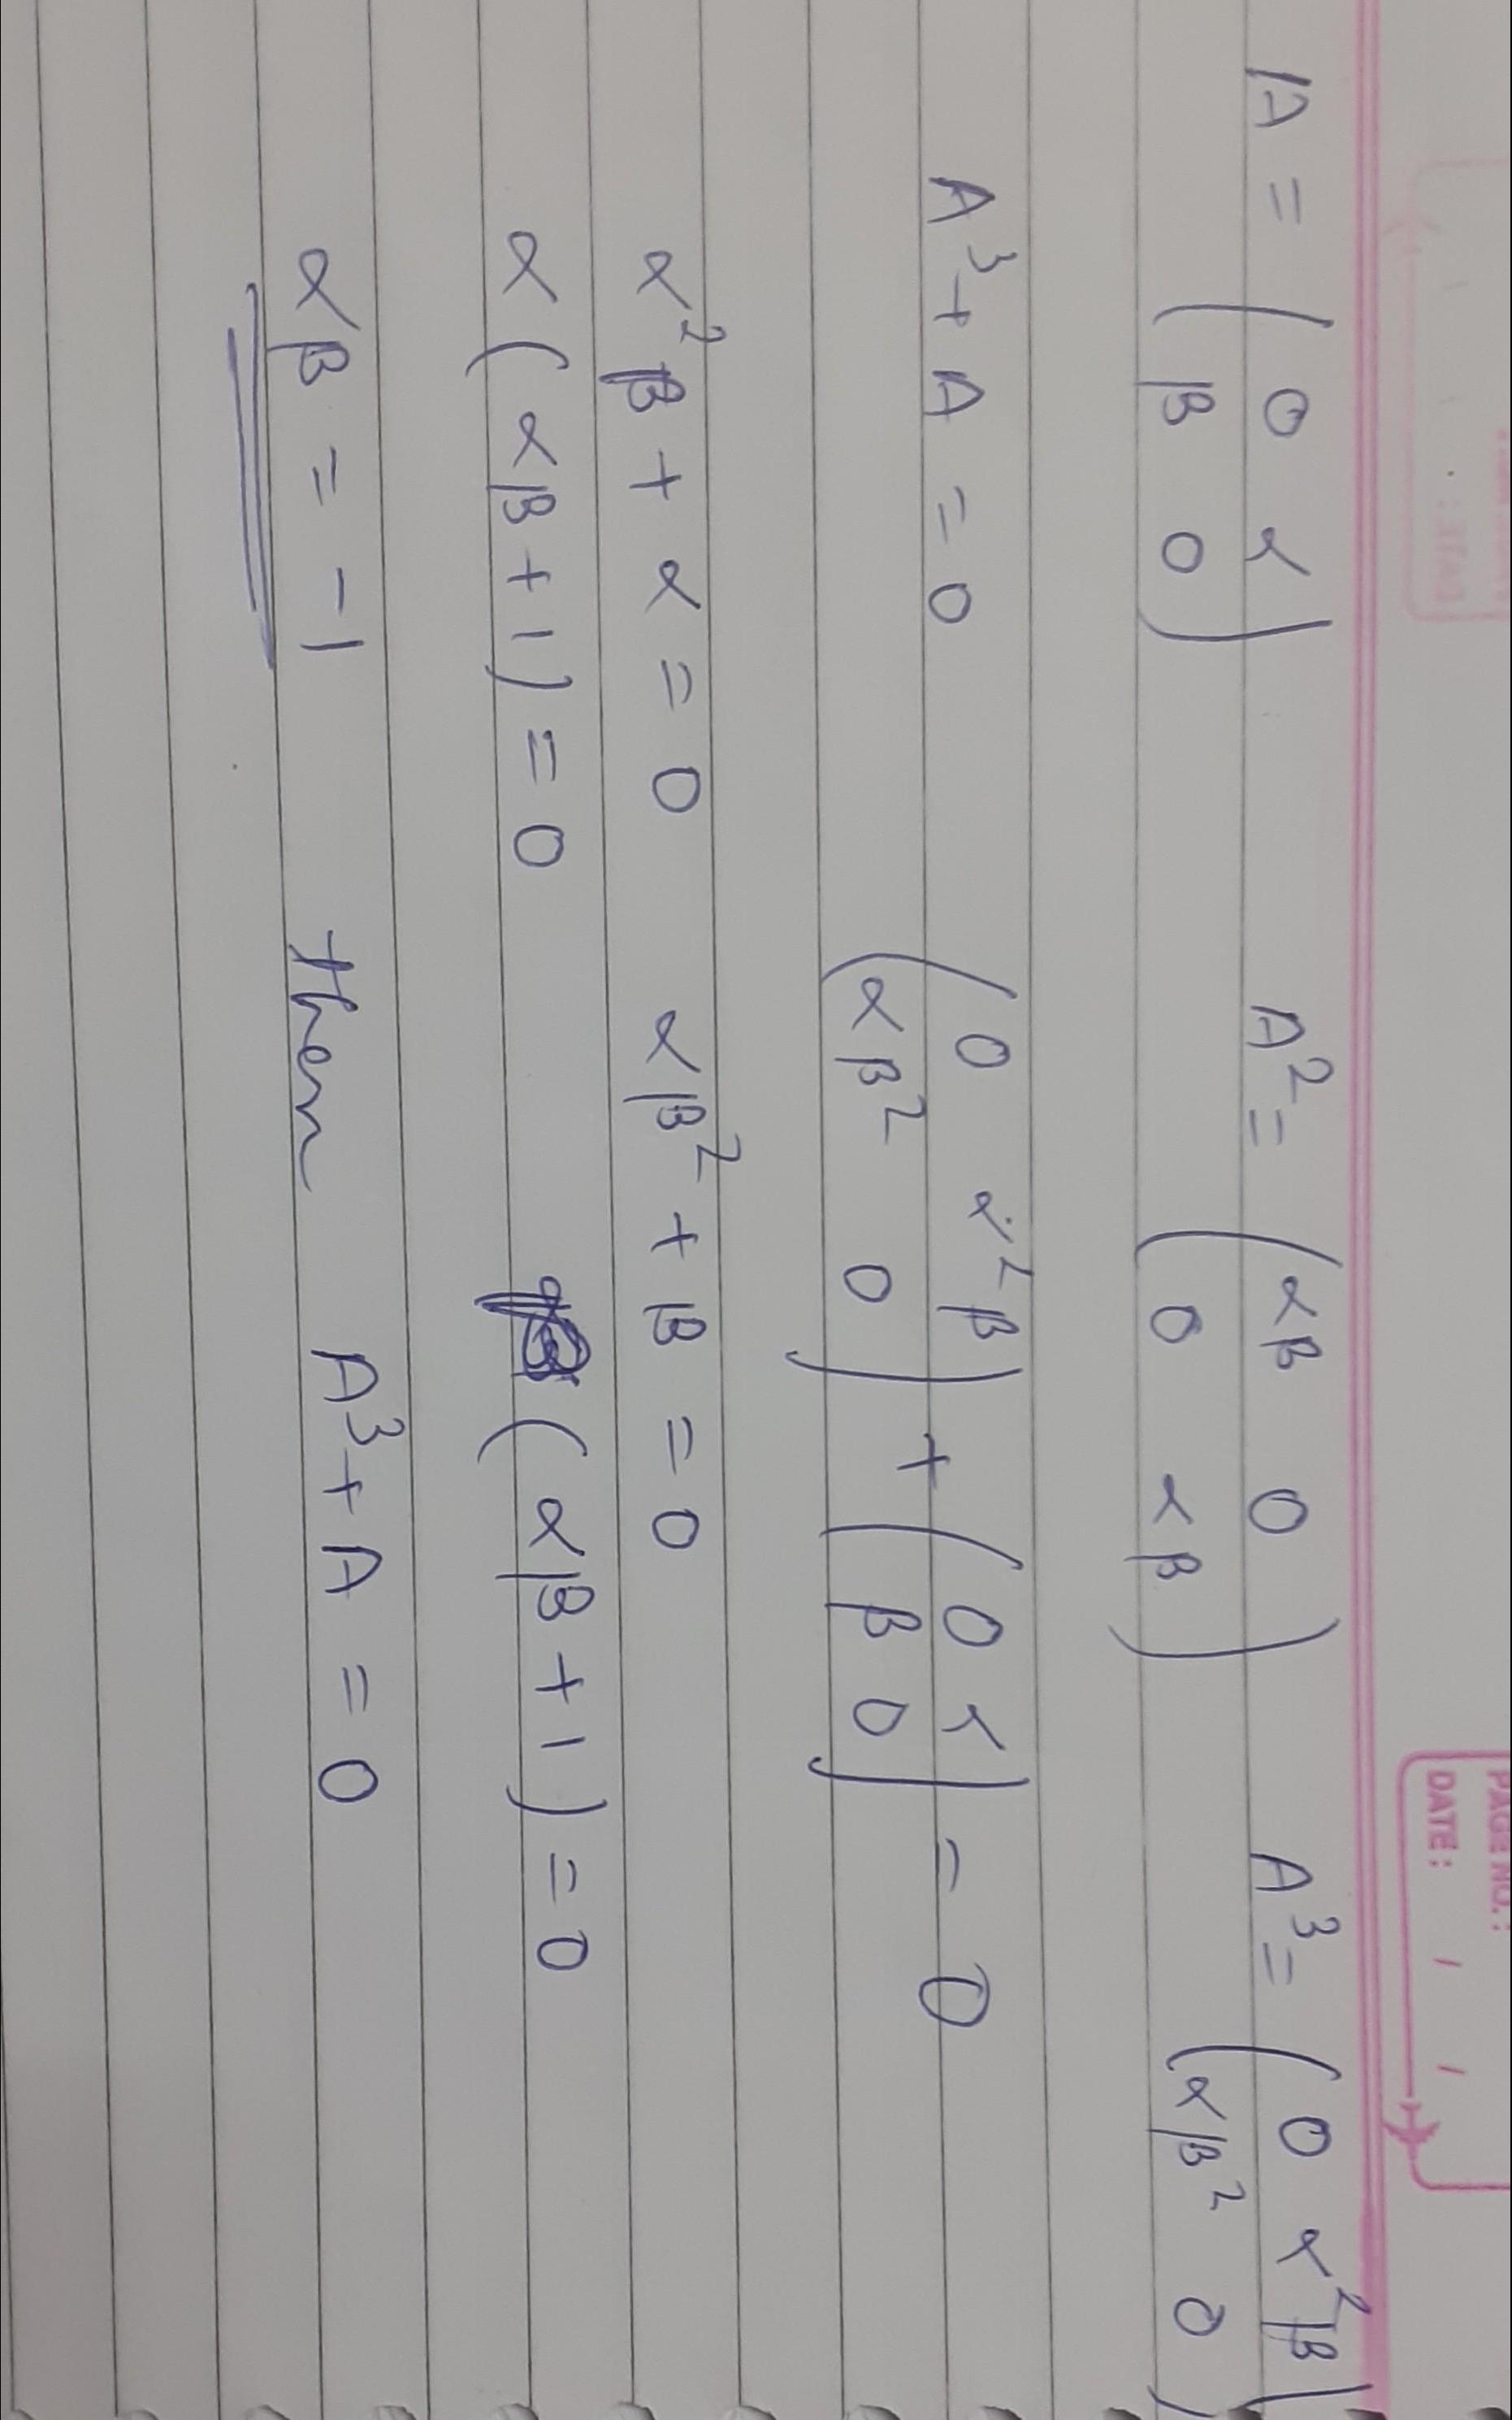 PAGE NO.:
DATE: / /
A = ( 0 α ) A² = ( αβ 0 ) A³ = ( 0 α²β )
( β 0 ) ( 0 αβ ) ( αβ² 0 )
A³ + A = 0 ( 0 α²β ) + ( 0 α ) = 0
( αβ² 0 ) ( β 0 )
α²β + α = 0 αβ² + β = 0
α (αβ + 1) = 0 β (αβ + 1) = 0
αβ = -1 then A³ + A = 0